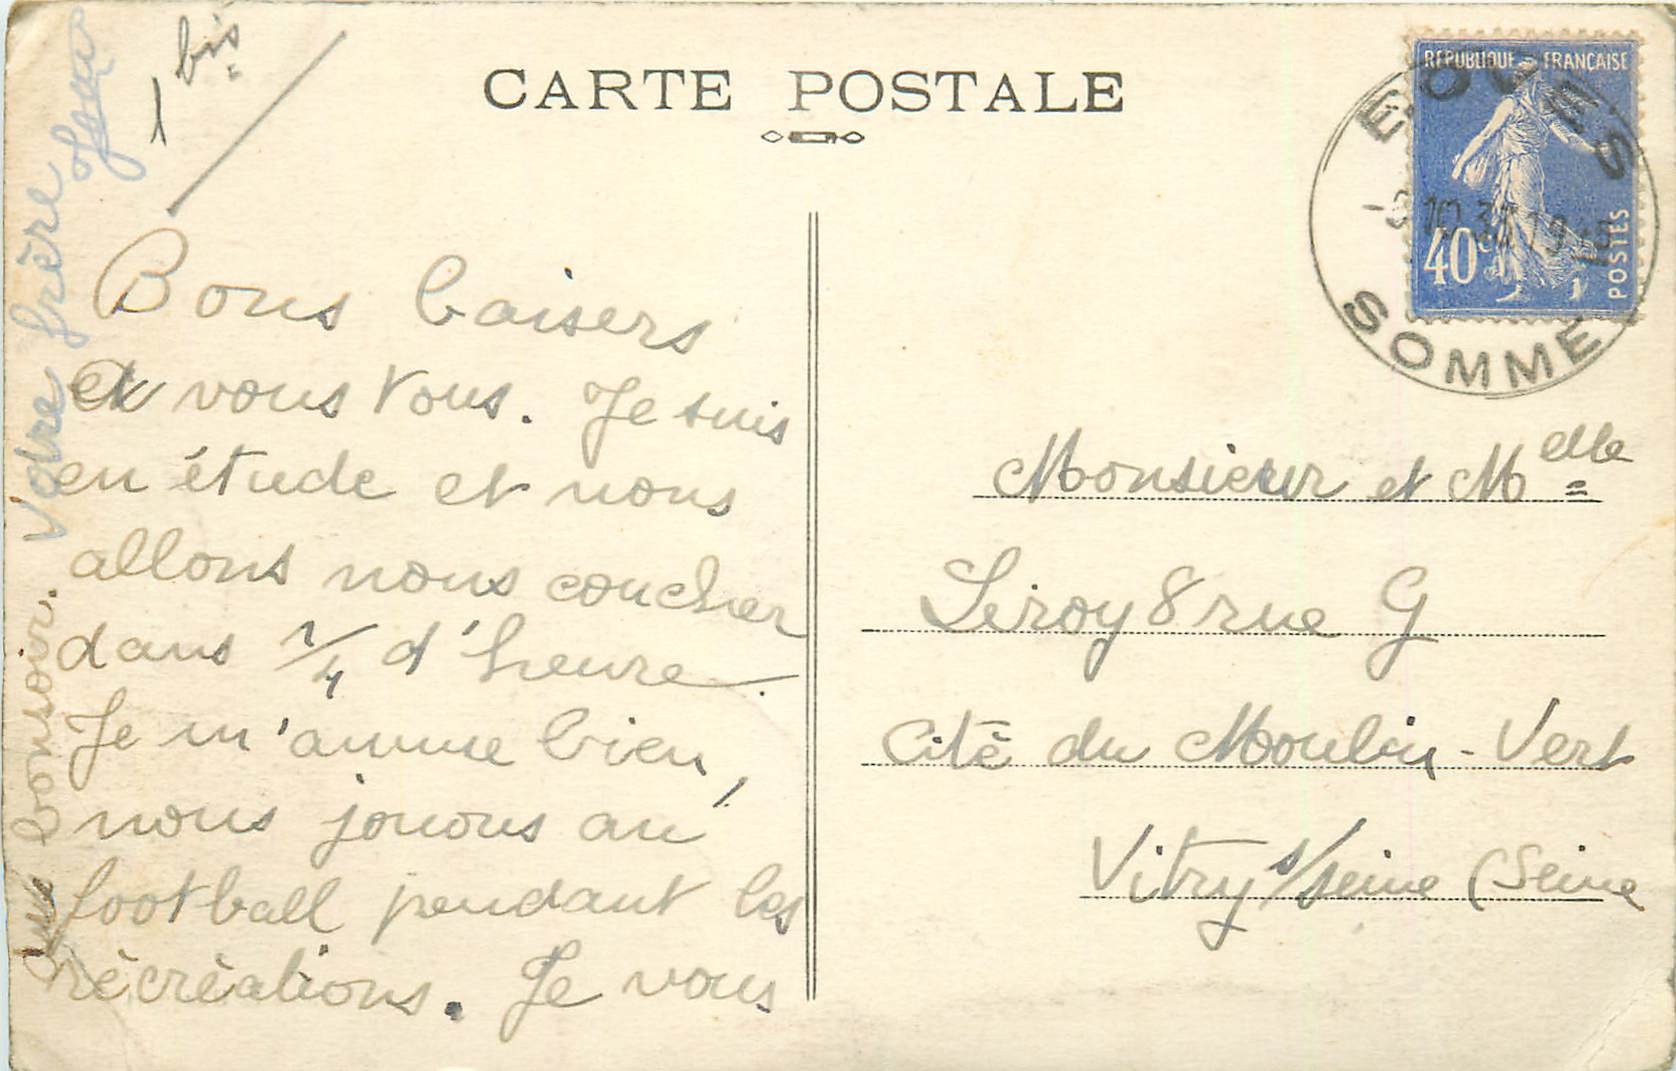 1 bis
CARTE POSTALE
REPUBLIQUE FRANÇAISE
40c
POSTES
SOMME
Bons baisers
et vous tous. Je suis
en étude et nous
allons nous coucher
dans 1/4 d'heure.
Je m'amuse bien,
nous jouons au
football pendant les
récréations. Je vous
dis bonsoir. Votre frère Jean
Monsieur et Melle
Leroy 8 rue G
Cité du Moulin-Vert
Vitry s/Seine (Seine